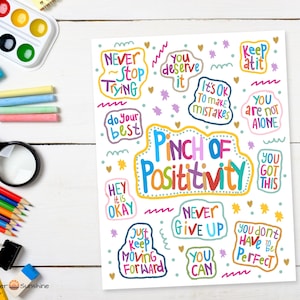 NEVER
Stop
TRYING
you
deserve
it
Keep
at it
It's OK
TO MAKE
MISTAKES
YOU ARE
NOT
ALONE
do your
best
PINCH OF
POSITITIVITY
YOU
GOT
THIS
HEY
it is
OKAY
NEVER
GIVE UP
YOU DON'T
HAVE to
BE
PERFECT
Just
KEEP
MOVING
FORWARD
YOU
CAN
Sunshine